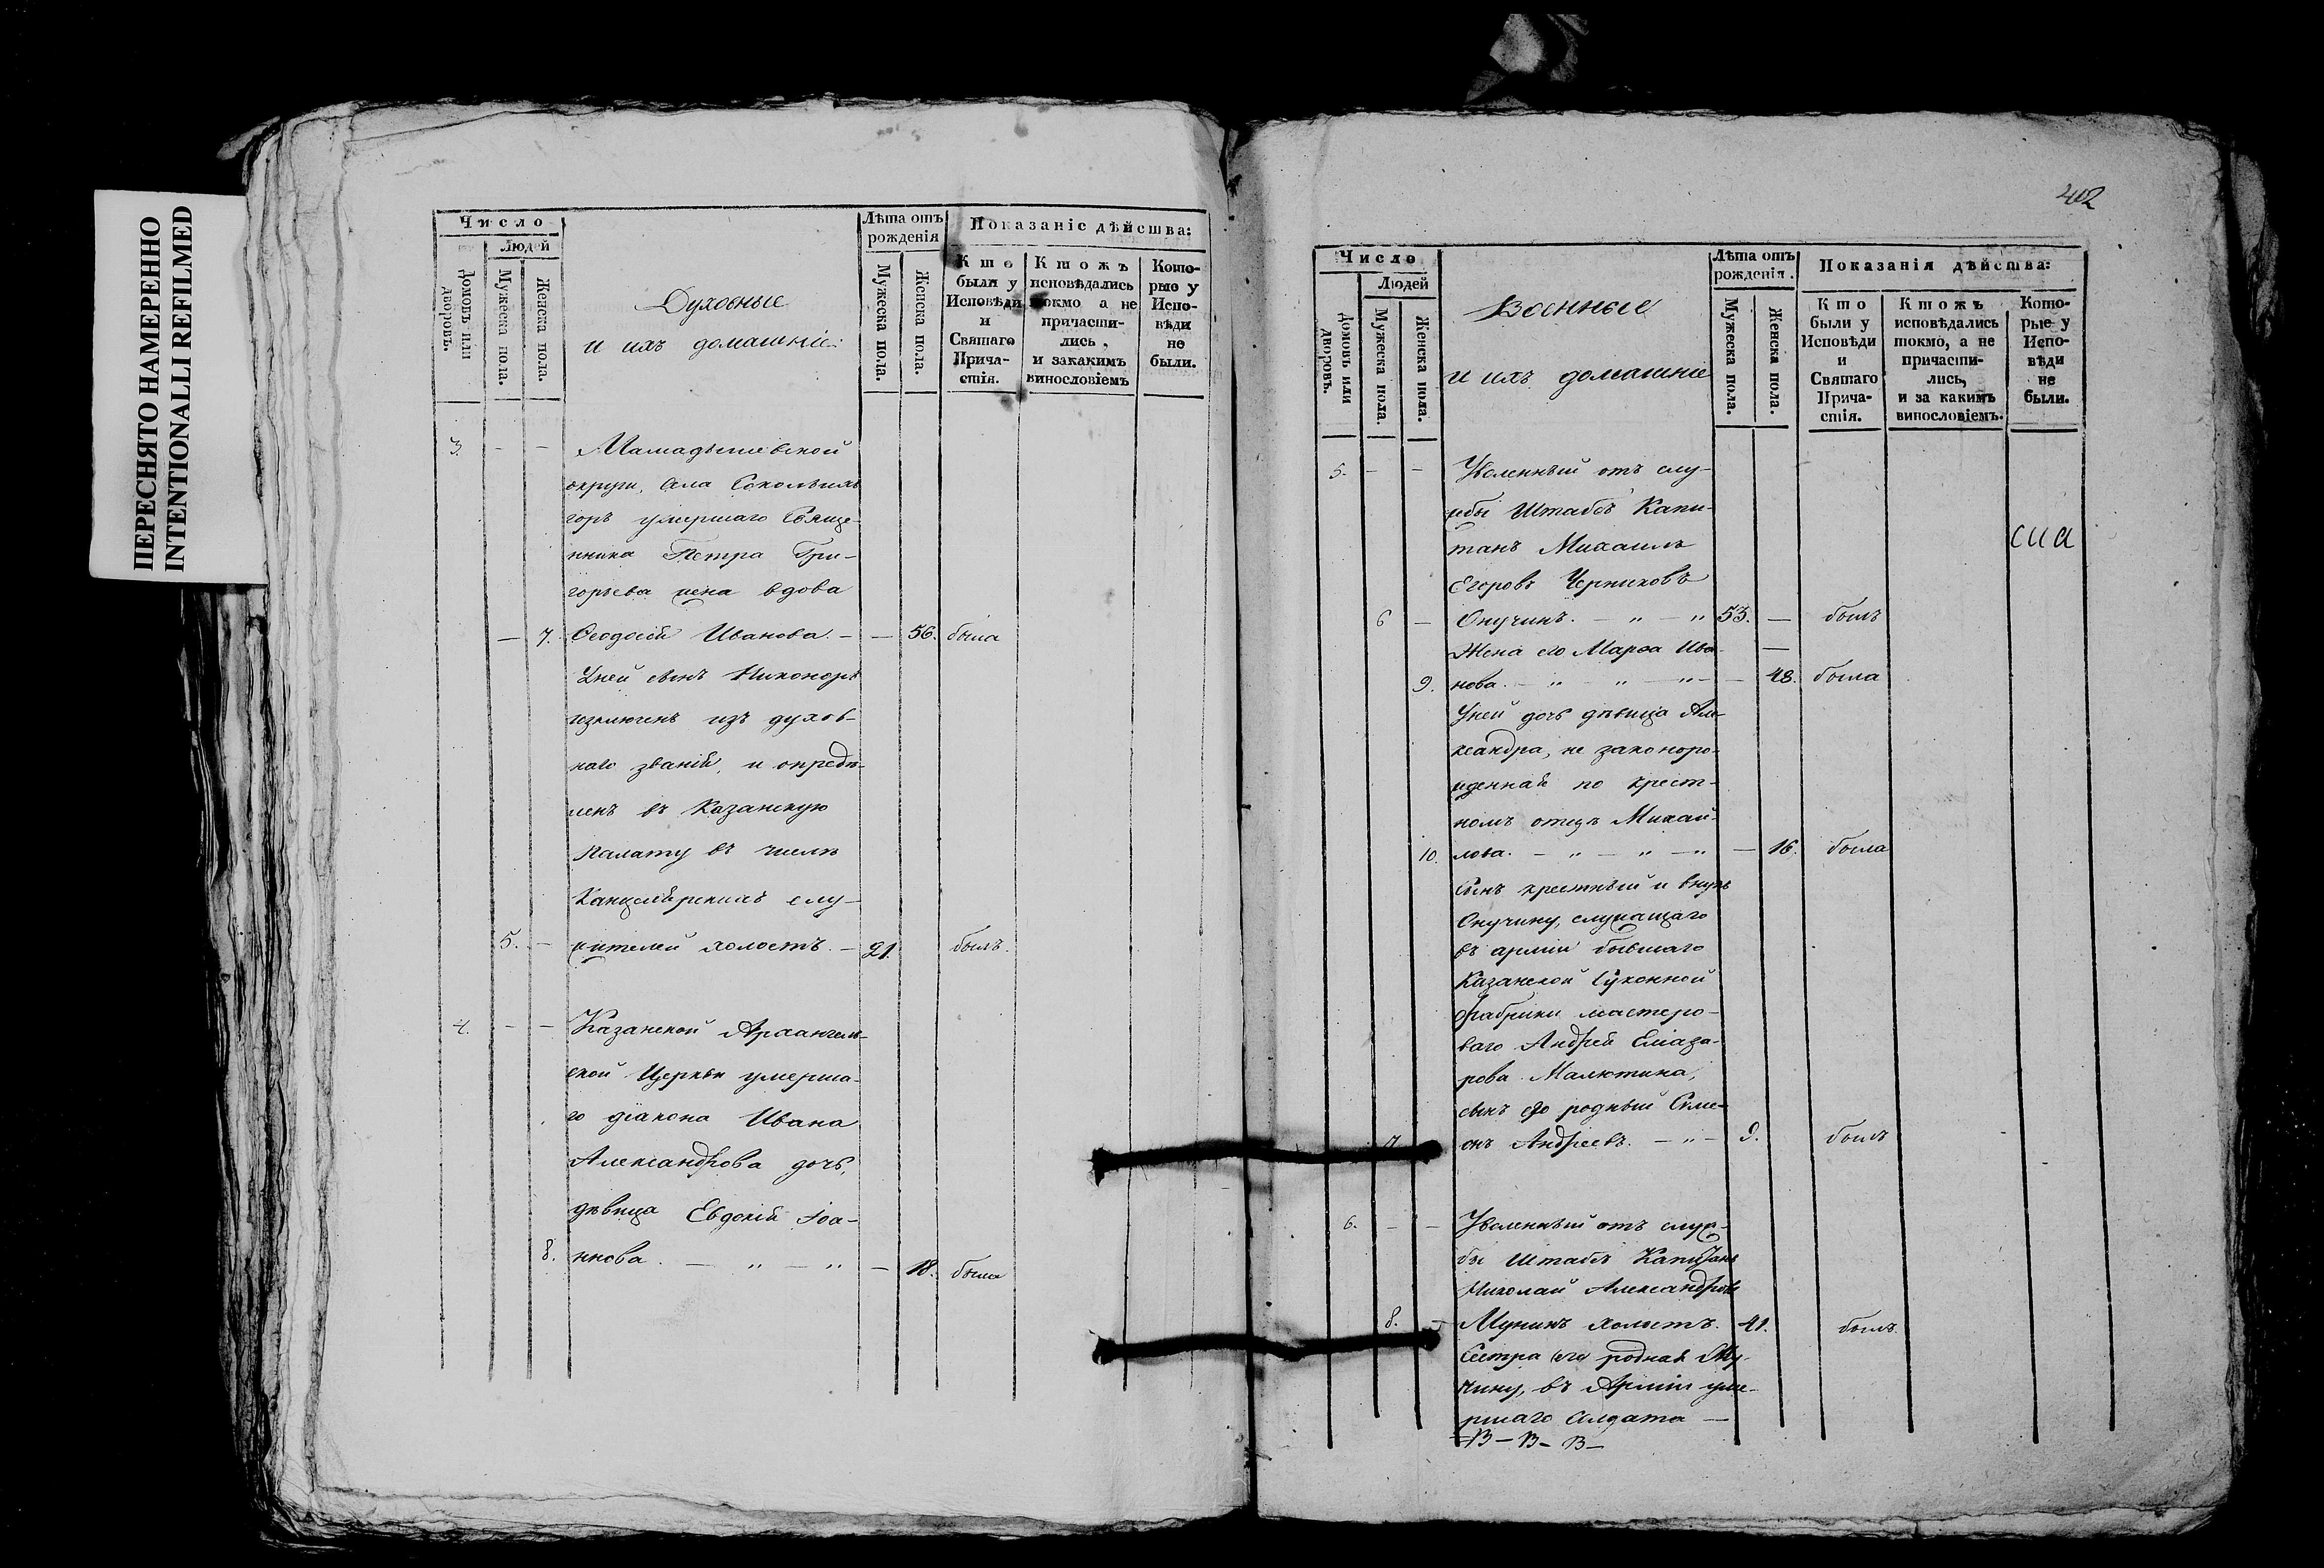 ПЕРЕСНЯТО НАМЕРЕННО
INTENTIONALLI REFILMED
Число
Людей
Домовъ или дворовъ.
Мужеска пола.
Женска пола.
Духовные
и ихъ домашніе:
Лѣта отъ
рожденія
Мужеска пола.
Женска пола.
Показаніе дѣйства:
Кто
были у
Исповѣди
и
Святаго
Прича-
стія.
Ктожъ
исповѣдались
токмо а не
причасти-
лись,
и закакимъ
винословіемъ
Кото-
рые у
Испо-
вѣди
не
были.
3. - - Мамадышевской
округи, села Сокольихъ
горъ умершаго Свяще-
нника Петра Гри-
горьева жена вдова
- 7. Ѳеодосія Иванова. - - 56. была
Уней сынъ Никоноръ
изключенъ изъ духов-
наго званія, и опредѣ-
ленъ въ Казанскую
Палату въ числѣ
Канцелярскихъ слу-
5. - жителей холостъ. - 21. былъ.
4. - - Казанской Архангель-
ской Церкви умерша-
го діакона Ивана
Александрова дочь,
дѣвица Евдокія Іоа-
8. ннова. - " - " - 18. была
402
Число
Людей
Домовъ или дворовъ.
Мужеска пола.
Женска пола.
Военные
и ихъ домашніе
Лѣта отъ
рожденія.
Мужеска пола.
Женска пола.
Показанія дѣйства:
Кто
были у
Исповѣди
и
Святаго
Прича-
стія.
Ктожъ
исповѣдались
токмо, а не
причасти-
лись,
и за какимъ
винословіемъ.
Кото-
рые у
Испо-
вѣди
не
были.
5. - - Уволенный отъ слу-
жбы Штабсъ Капи-
танъ Михаилъ
Егоровъ Черниковъ
6 - Онучинъ. - " - " 53. - былъ
Жена его Марѳа Ива- -
9. нова. - " - " - " - - 48. была
Уней дочь дѣвица Але-
ксандра, не законоро-
жденная по крест-
номъ отцѣ Михай-
10. лова. - " - " - " - 16. была
Сынъ крестный и внукъ
Онучину, служащаго
въ арміи бывшаго
Казанской Суконной
фабрики мастеро-
ваго Андрея Еліаза-
рова Малютина,
сынъ его родный Симе-
7 онъ Андреевъ. - " - 9. былъ
6. - - Уволенный отъ служ-
бы Штабсъ Капитанъ
Николай Александровъ
8. - Мунинъ холостъ. 41. былъ.
Сестра его родная
въ Арміи уме-
ршаго Солдата -
- В - В - В -